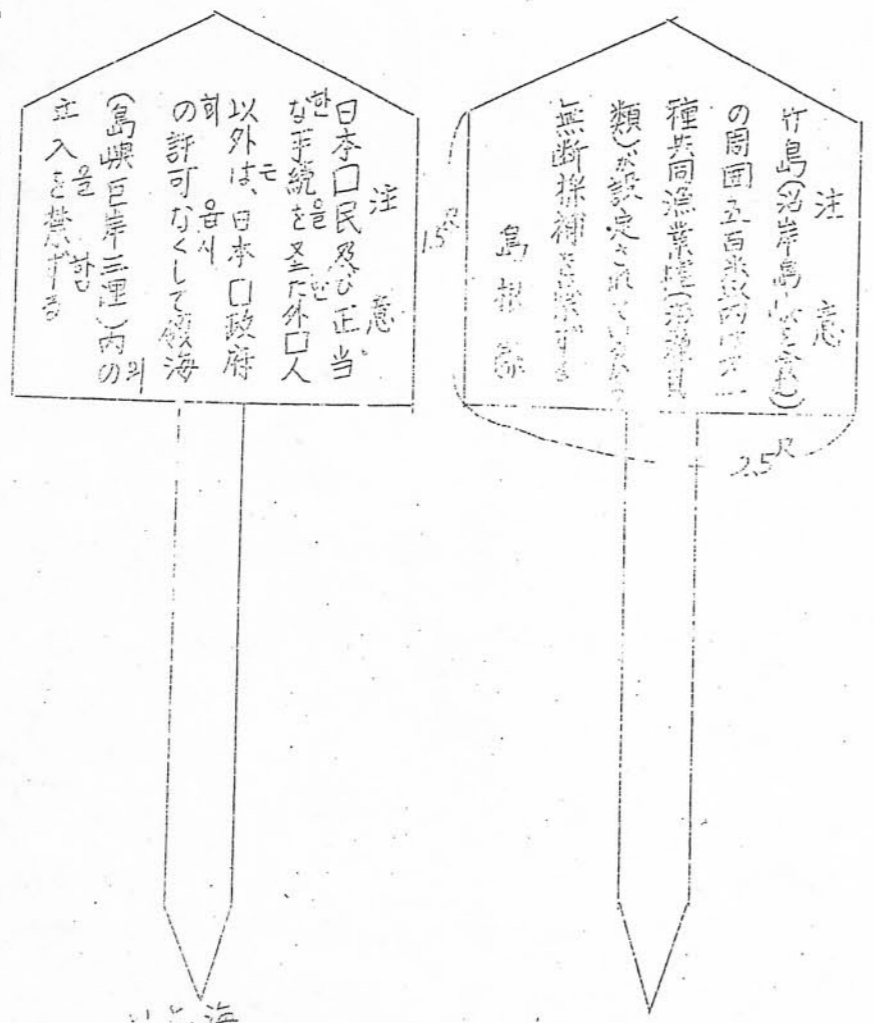 注意
竹島(沿岸島嶼を含む)
の周囲五百米以内は第一
種共同漁業権(海藻貝
類)が設定されているので
無断採捕を禁ずる
島根県
1.5尺
2.5尺
注意
日本囗民及び正当
な手続を経た外囗人
以外は、日本囗政府
の許可なくして領海
(島嶼巨岸三浬)内の
立入を禁ずる